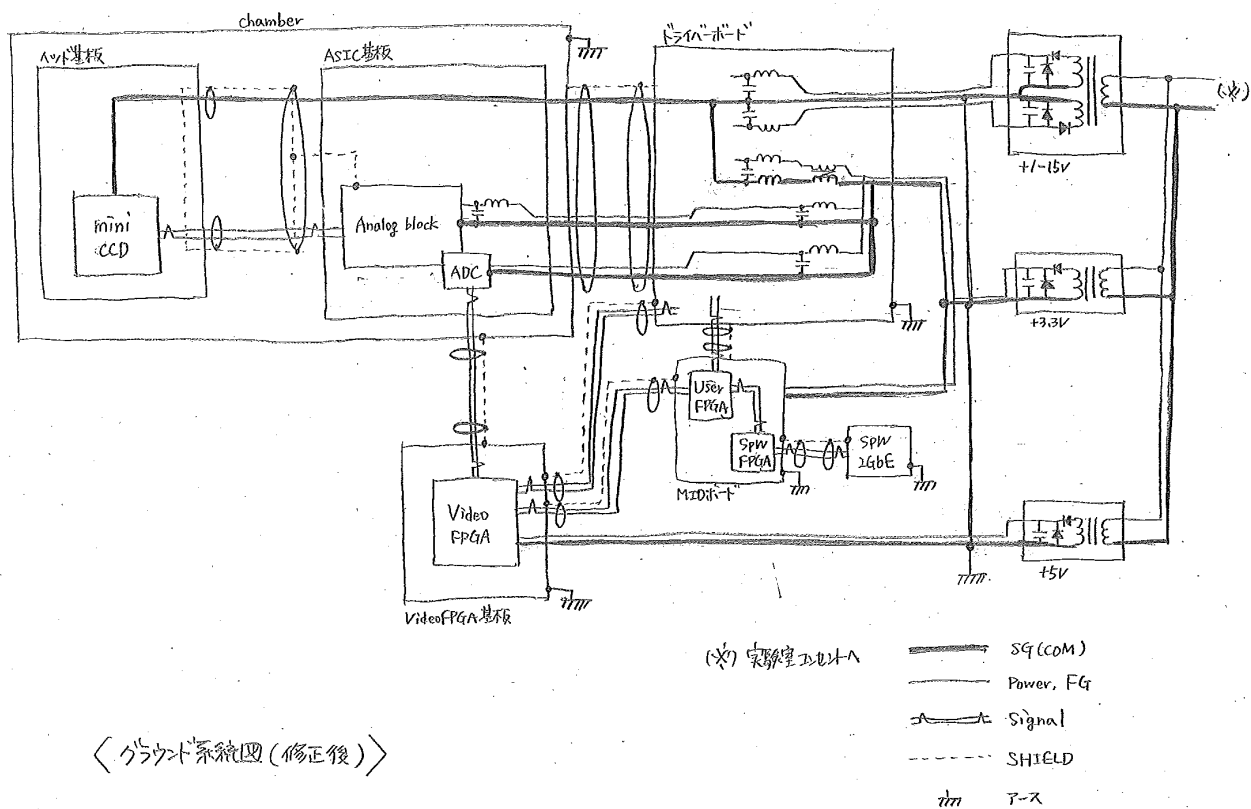 chamber
ヘッド基板
ASIC基板
ドライバーボード
mini
CCD
Analog block
ADC
+/-15V
(※)
+3.3V
User
FPGA
SpW
FPGA
SpW
2GbE
MIDIボード
Video
FPGA
VideoFPGA基板
+5V
(※) 実験室コンセントへ
SG(COM)
Power, FG
Signal
SHIELD
アース
〈グラウンド系統図(修正後)〉